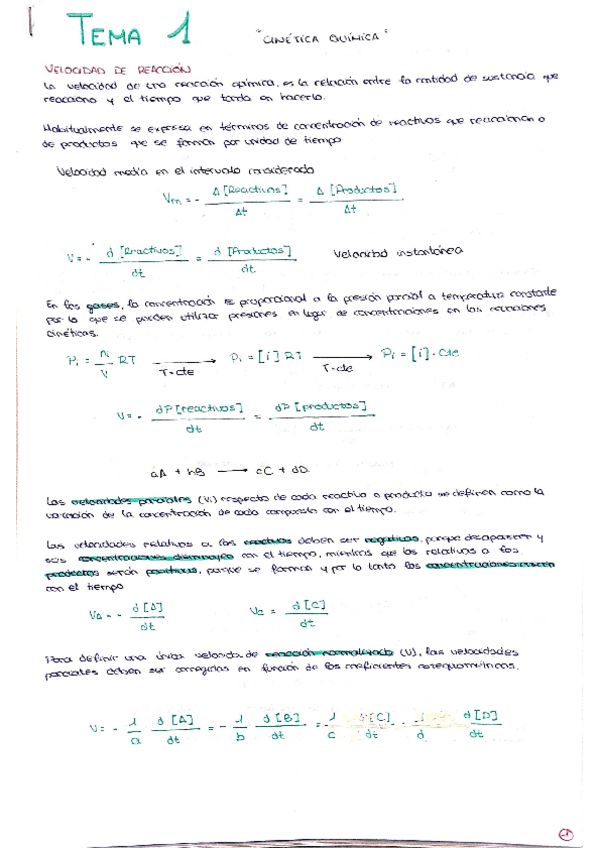 TEMA 1 "CINÉTICA QUÍMICA"
VELOCIDAD DE REACCIÓN
La velocidad de una reacción química, es la relación entre la cantidad de sustancia que
reacciona y el tiempo que tarda en hacerlo.
Habitualmente se expresa en términos de concentración de reactivos que reaccionan o
de productos que se forman por unidad de tiempo
Velocidad media en el intervalo considerado
Vm = - Δ [Reactivos] / Δt = Δ [Productos] / Δt
V = - d [Reactivos] / dt = d [Productos] / dt Velocidad instantánea
En los gases, la concentración es proporcional a la presión parcial a temperatura constante
por lo que se pueden utilizar presiones en lugar de concentraciones en las ecuaciones
cinéticas.
Pi = ni / V RT → T=cte Pi = [i] RT → T=cte Pi = [i] · Cte
V = - dP [reactivos] / dt = dP [productos] / dt
aA + bB → cC + dD
Las velocidades parciales (Vi) respecto de cada reactivo o producto se definen como la
variación de la concentración de cada compuesto con el tiempo.
Las velocidades relativas a los reactivos deben ser negativas, porque desaparecen y
sus concentraciones disminuyen con el tiempo, mientras que las relativas a los
productos serán positivas, porque se forman y por lo tanto las concentraciones crecen
con el tiempo
VA = - d [A] / dt Vc = d [C] / dt
Para definir una única velocida de reacción normalizada (V), las velocidades
parciales deben ser corregidas en función de los coeficientes estequiométricos.
V = - 1/a d [A] / dt = - 1/b d [B] / dt = 1/c d [C] / dt 1/d d [D] / dt
1